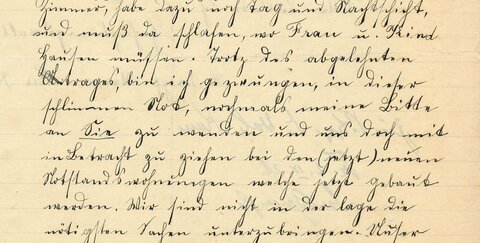 Zimmer, habe dazu noch Tag und Nachtschicht,
und muß da schlafen, wo Frau u. Kind
Hausen müssen. Trotz des abgelehnten
Antrages, bin ich gezwungen, in dieser
schlimmen Not, nochmals meine Bitte
an Sie zu wenden und uns doch mit
in Betracht zu ziehen bei den (jetzt) neuen
Notstandswohnungen welche jetzt gebaut
werden. Wir sind nicht in der lage die
nötigsten Sachen unterzubringen. Unser